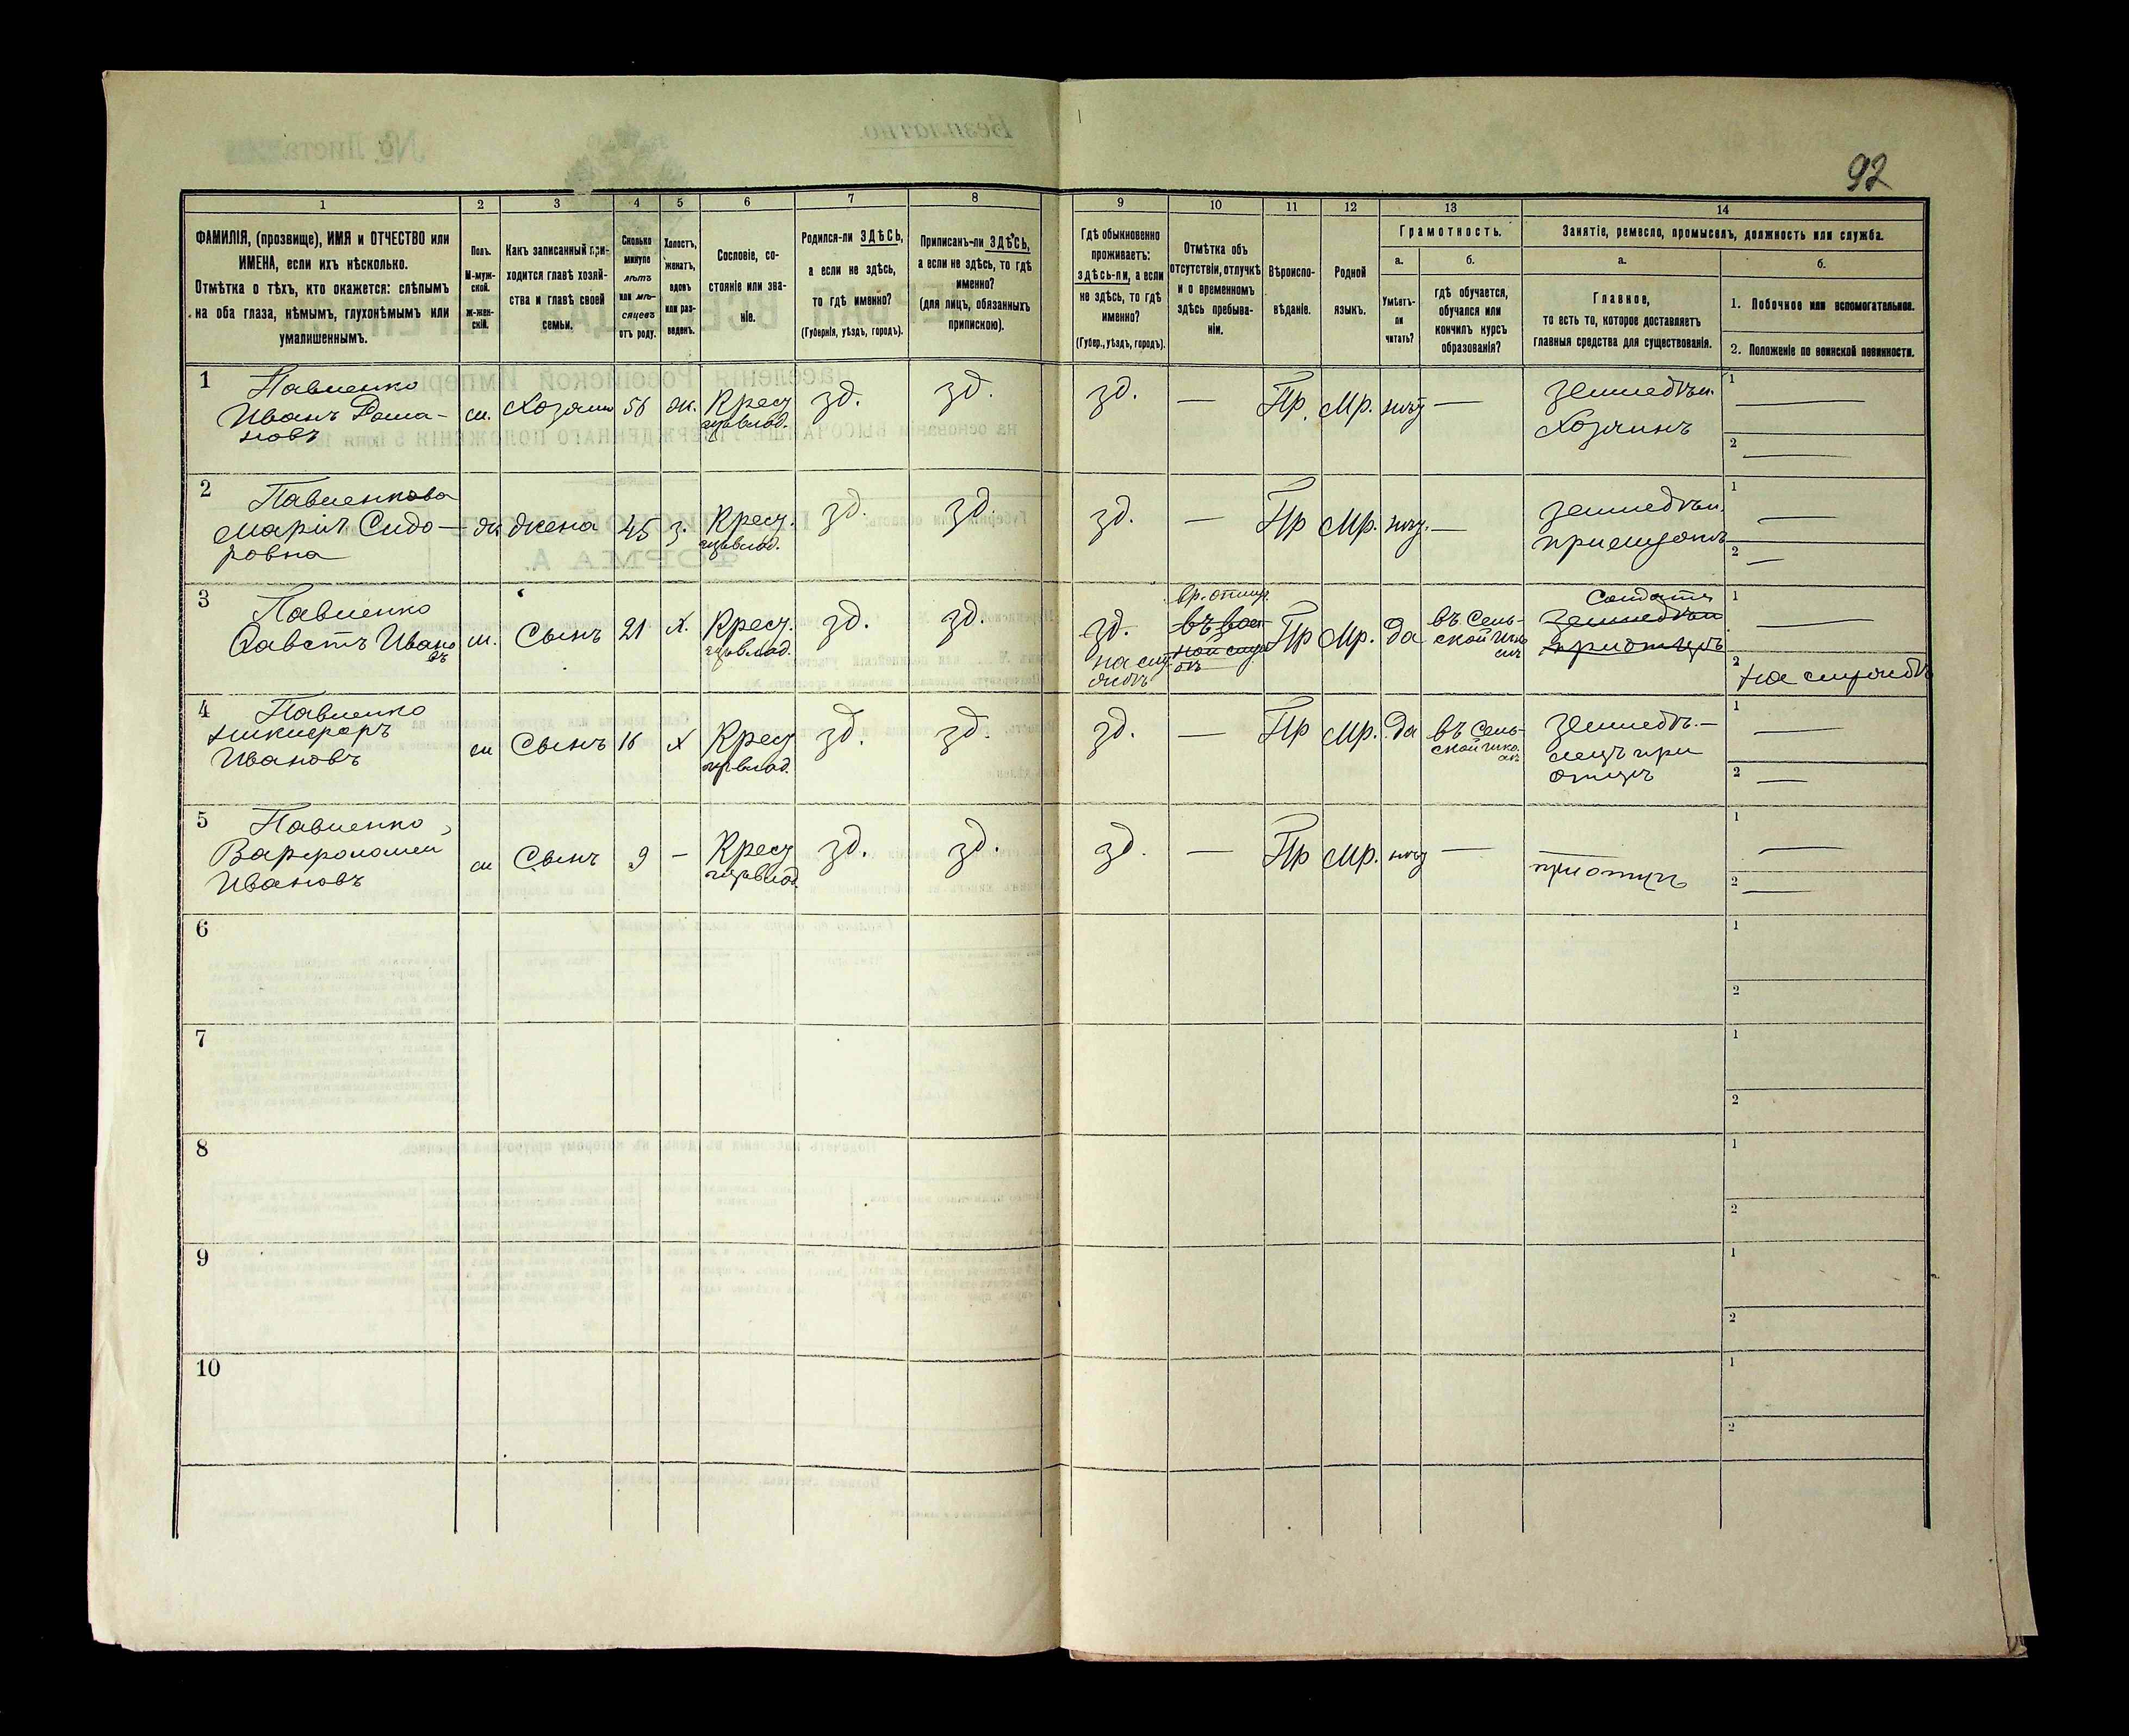 92
1 2 3 4 5 6 7 8 9 10 11 12 13 14
ФАМИЛІЯ, (прозвище), ИМЯ и ОТЧЕСТВО или
ИМЕНА, если ихъ нѣсколько.
Отмѣтка о тѣхъ, кто окажется: слѣпымъ
на оба глаза, нѣмымъ, глухонѣмымъ или
умалишеннымъ.
Полъ.
М-муж-
ской.
Ж-жен-
скій.
Какъ записанный при-
ходится главѣ хозяй-
ства и главѣ своей
семьи.
Сколько
минуло
лѣтъ
или мѣ-
сяцевъ
отъ роду.
Холостъ,
женатъ,
вдовъ
или раз-
веденъ.
Сословіе, со-
стояніе или зва-
ніе.
Родился-ли ЗДѢСЬ,
а если не здѣсь,
то гдѣ именно?
(Губернія, уѣздъ, городъ).
Приписанъ-ли ЗДѢСЬ,
а если не здѣсь, то гдѣ
именно?
(для лицъ, обязанныхъ
припискою).
Гдѣ обыкновенно
проживаетъ:
здѣсь-ли, а если
не здѣсь, то гдѣ
именно?
(Губер., уѣздъ, городъ).
Отмѣтка объ
отсутствіи, отлучкѣ
и о временномъ
здѣсь пребыва-
ніи.
Вѣроиспо-
вѣданіе.
Родной
языкъ.
Грамотность.
а.
Умѣетъ-
ли
читать?
б.
гдѣ обучается,
обучался или
кончилъ курсъ
образованія?
Занятіе, ремесло, промыселъ, должность или служба.
а.
Главное,
то есть то, которое доставляетъ
главныя средства для существованія.
б.
1. Побочное или вспомогательное.
2. Положеніе по воинской повинности.
1 Павленко
Иванъ Дема-
новъ
м. Хозяинъ 56 ж. Крест зд. зд. зд. — Пр. Мр. нѣт — земледѣл.
Хозяинъ
1 —
2 —
2 Павленкова
Марія Сидо-
ровна
ж жена 45 з. Крест. зд. зд. зд. — Пр Мр. нѣт. — земледѣл.
1 —
2 —
3 Павленко
Хавстъ Ивано
въ
м. Сынъ 21 х. Крест. зд. зд. зд.
на слу
жбѣ
вр. отлуч.
въ воен
ной служ
бѣ
Пр Мр. да въ Сель-
ской Шко
лѣ
Солдатъ
земледѣл
при отцѣ
1 —
2 На службѣ
4 Павленко
Никифоръ
Ивановъ
м Сынъ 16 х Крест зд. зд. зд. — Пр Мр. да въ Сель-
ской Шко.
лѣ
земледѣ. —
лецъ при
отцѣ
1 —
2 —
5 Павленко
Варфоломей
Ивановъ
м Сынъ 9 — Крест зд. зд. зд. — Пр Мр. нѣт —
при отцѣ
1 —
2 —
6 1
2
7 1
2
8 1
2
9 1
2
10 1
2